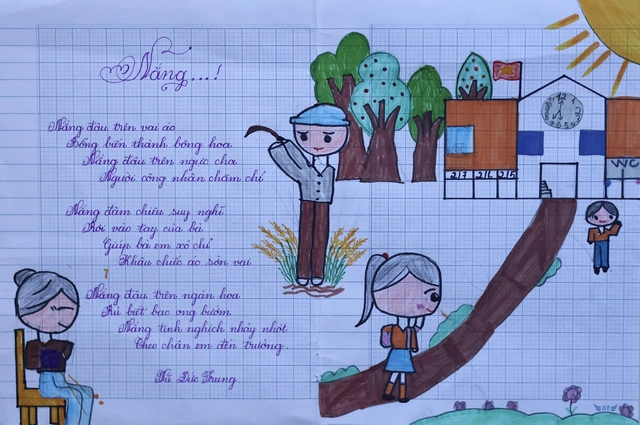 Nắng...!
Nắng đậu trên vai áo
Bỗng biến thành bông hoa
Nắng đậu trên ngực cha
Người công nhân chăm chỉ
Nắng đăm chiêu suy nghĩ
Rơi vào tay của bà
Giúp bà em xỏ chỉ
Khâu chiếc áo sờn vai
Nắng đậu trên ngàn hoa
Rủ biết bao ong bướm
Nắng tinh nghịch nhảy nhót
Theo chân em đến trường.
Thi Đức Trung.
217 216 215
WC